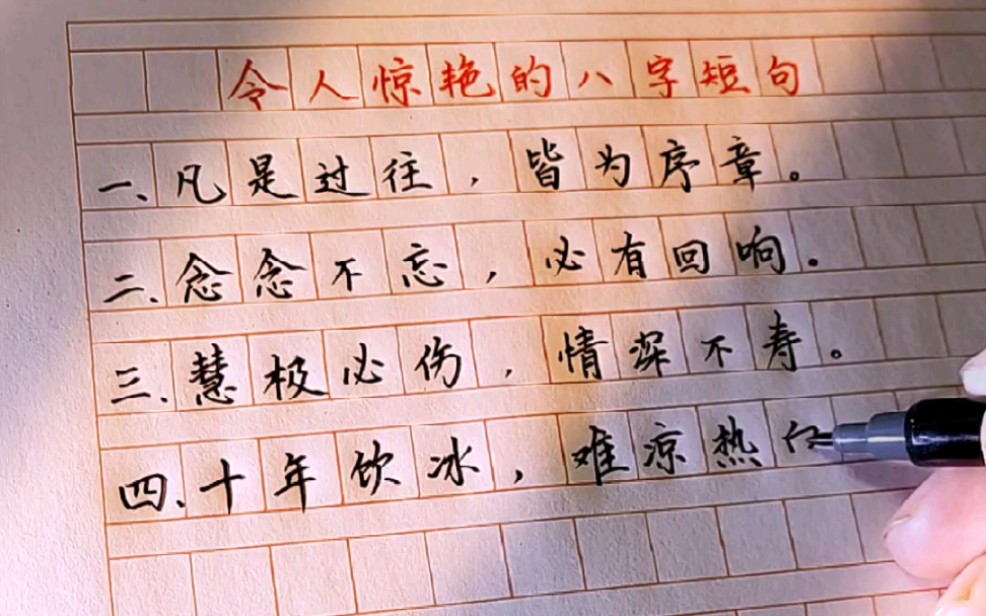 令人惊艳的八字短句
一、凡是过往，皆为序章。
二、念念不忘，必有回响。
三、慧极必伤，情深不寿。
四、十年饮冰，难凉热